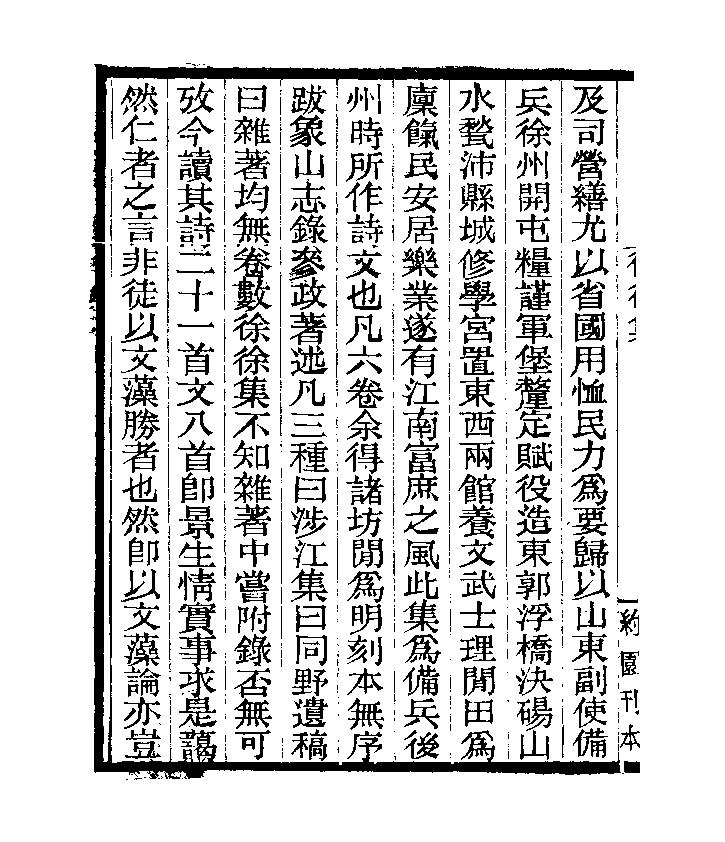 及司營繕尤以省國用恤民力爲要歸以山東副使備
兵徐州開屯糧謹軍堡釐定賦役造東郭浮橋決碭山
水甃沛縣城修學宮置東西兩館養文武士理閒田爲
廩餼民安居樂業遂有江南富庶之風此集爲備兵後
州時所作詩文也凡六卷余得諸坊閒爲明刻本無序
跋象山志錄參政著述凡三種曰涉江集曰同野遺稿
曰雜著均無卷數徐徐集不知雜著中嘗附錄否無可
攷今讀其詩二十一首文八首卽景生情實事求是藹
然仁者之言非徒以文藻勝者也然卽以文藻論亦豈
約園刊本